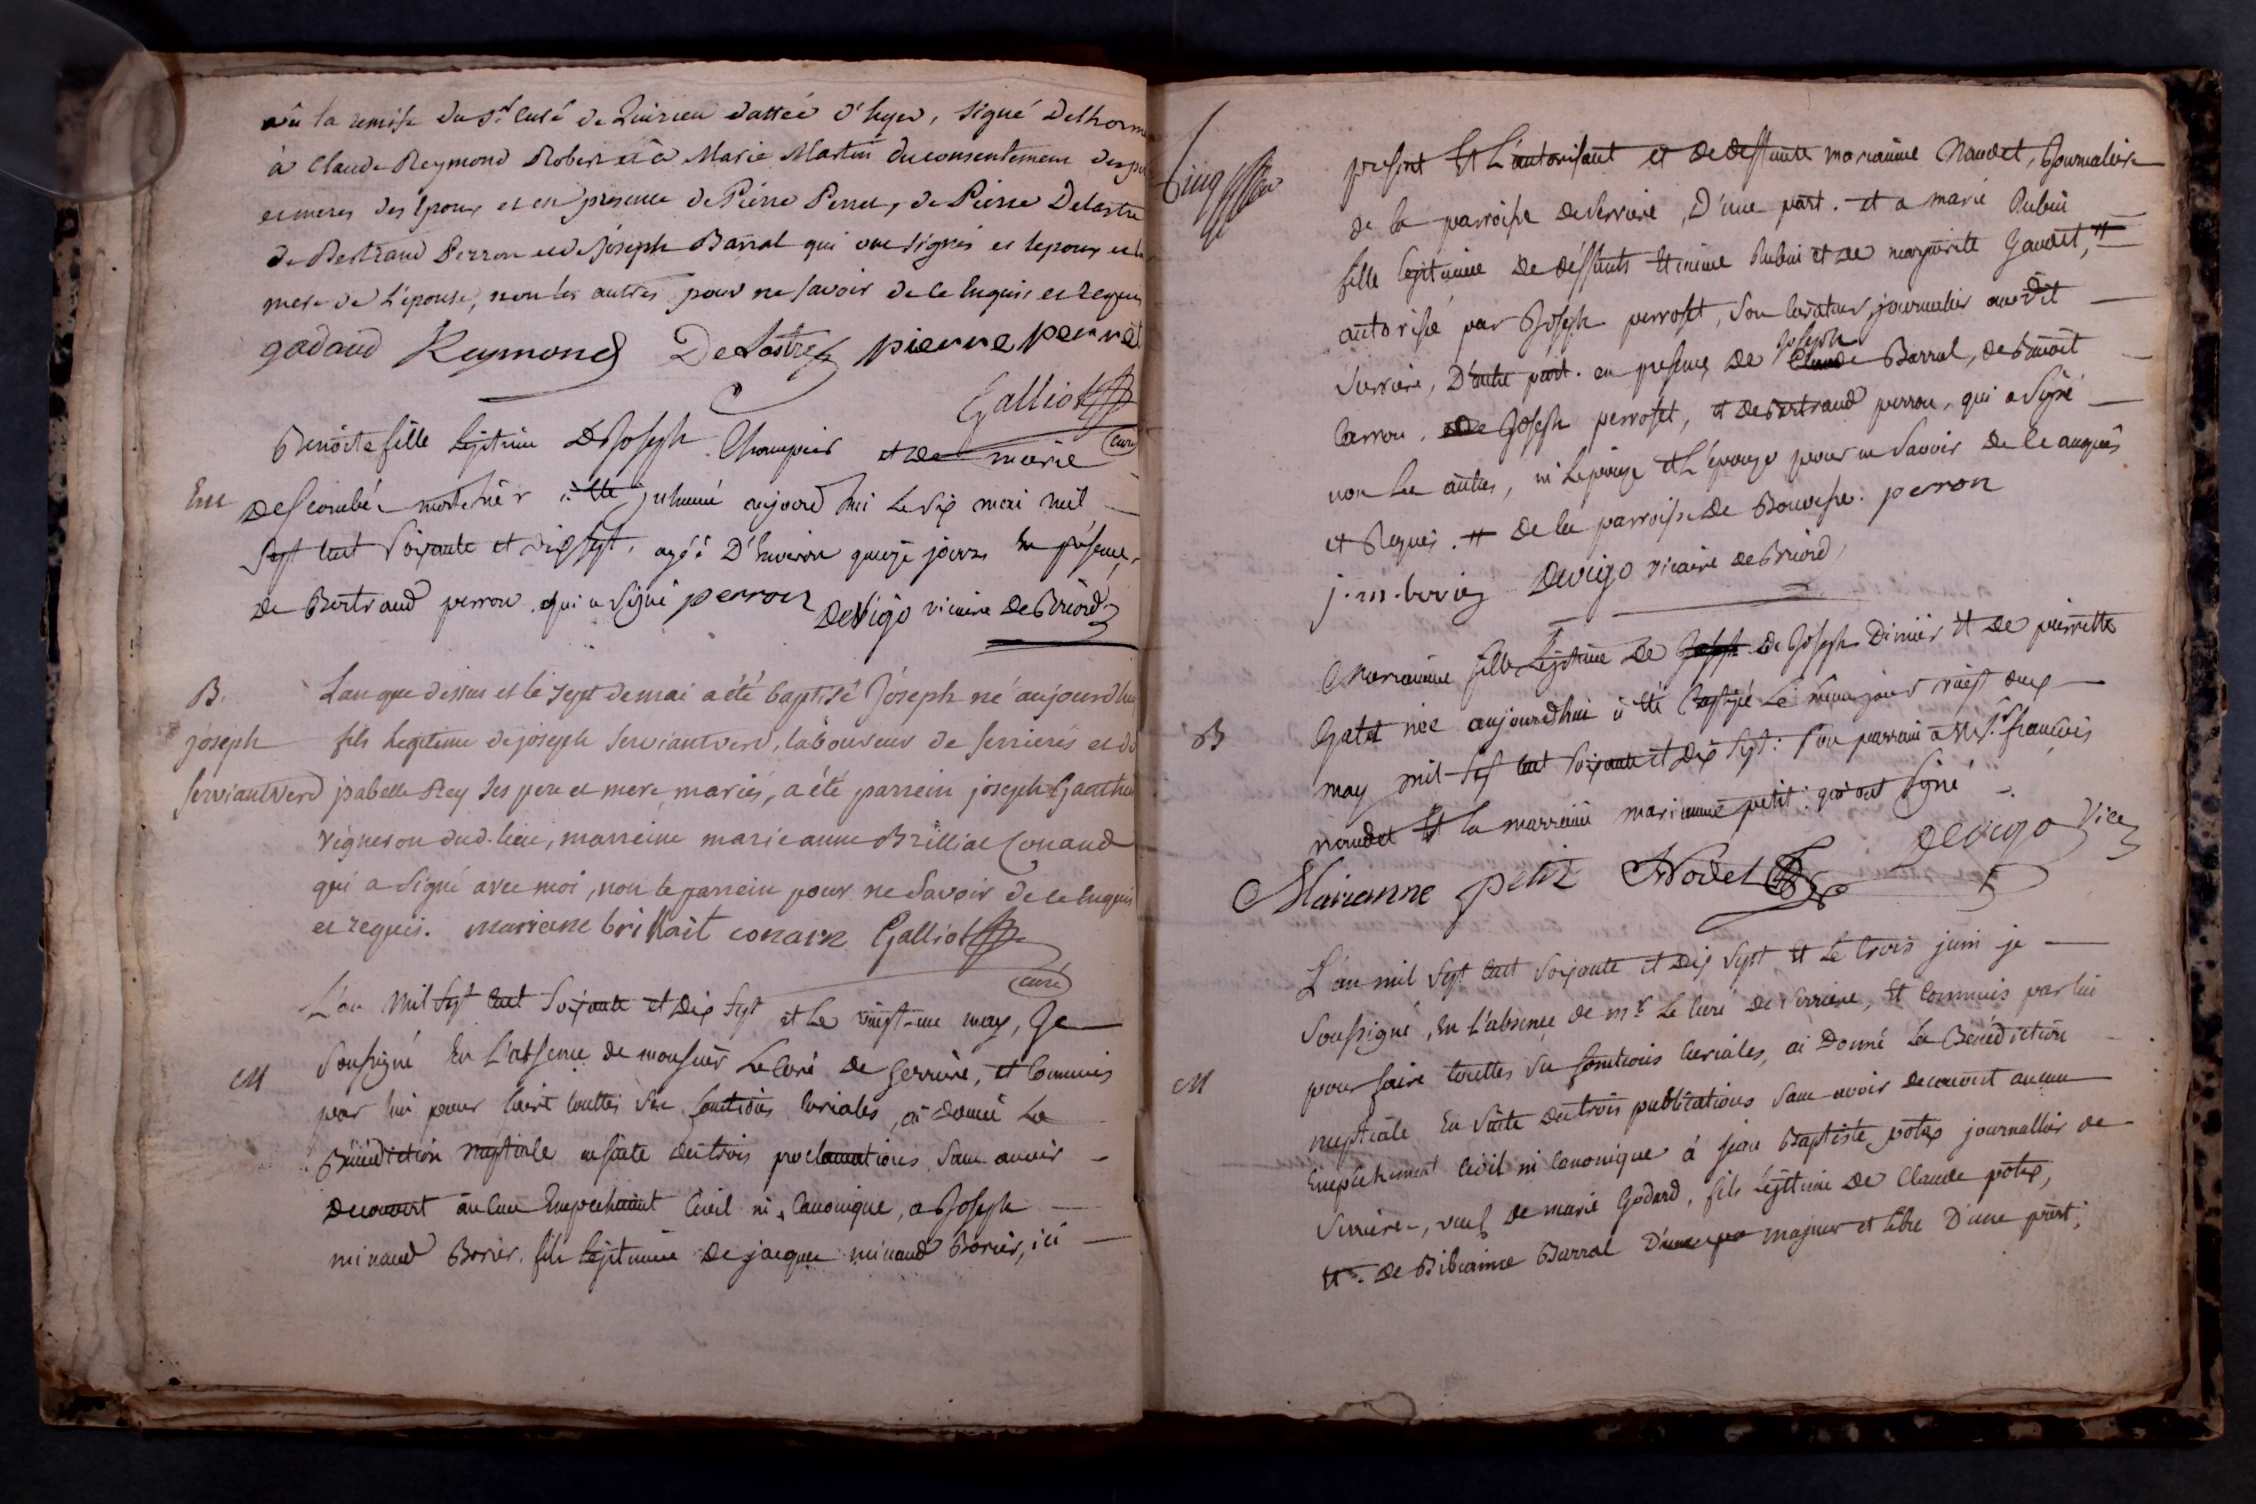 vû la remise du Sr. Curé de Quirieu dattée d'hyer, signé Delhorme
à Claude Reymond Robert et à Marie Martin du consentement des peres
et meres des Epoux et en presence de Pierre Perret, de Pierre Delastre
de Bertrand Perron et de joseph Barral qui ont signés et lepoux et la
mere de L'epouse, non les autres pour ne savoir de ce Enquis et requis
gadaud Raymond Delastre pierre perret
Galliot
curé
Benoite fille Legitime De Joseph Champier et De marie
Ent
Descombé morte hier à été inhumé aujourd'hui Le six mai mil
Sept Cent Soixante et dix sept, agéé D'Environ quinze jours En présence
de Bertrand perron qui a signé perron Devigo vicaire De Briord
B.
Lan que dessus et le sept de mai a été baptisé Jóseph né aujourdhui
jóseph
fils legitime de joseph Serviantverd, laboureur de serrieres et de
Serviantverd
ysabelle Rey ses pere et mere mariés, a été parrein joseph Ganthier
vigneron dud. lieu, marreine marie anne Brilliat Conand
qui a signé avec moi, non le parrein pour ne Savoir de ce Enquis
et requis. mariane brillait conain Galliot
curé
L'an Mil Sept Cent Soixante et Dix Sept et Le vingt-une may, Je
M
Soussigné En L'absence de monsieur Le Curé De Serriere, et Commis
par lui pour faire touttes ses fonctions Curiales, ai Donné La
Bénédiction nuptiale ensuite des trois proclamations Sans avoir
Decouvert aucun Empechement Civil ni Canonique, a Joseph
minaud Borier. fils Legitime De jacque minaud Borier, ici
Cinq
present Et L'autorisant et De deffunte marianne Naudet, Journaliere
de la parroisse De Serriere, D'une part. et a marie Rubin
fille legitime De déffunts Etienne Rubin et de margueritte Gaudet, #
autorisé par Joseph perroset, Son Curateur, journalier audit
Joseph
Serriere, D'autre part. en presence De Claude Barral, de Benoit
Carron. De Joseph perroset, et De Bertrand perron, qui a Signé
non Les autres, ni L'epoux et L'epouse pour ne Savoir de Ce anquis
et Requis. # De la parroisse De Bouvesse. perron
j.m.borier Devigo vicaire De Briord
Marianne fille Legitime De Joseph De Joseph Dimier Et De pierrette
B
Gatet née aujourdhui à été Baptisé Le même jour vingt deux
may mil Sept Cent Soixante et Dix Sept: Son parrain a été Sr. francois
naudet Et la marraine marianne petit: qui ont signé.
Devigo Vice
Marianne petit Nodet
L'an mil Sept Cent Soixante et Dix Sept Et Le trois juin je
Soussigné, En L'absence de mr. Le Curé De Serriere, Et Commis par lui
M
pour faire touttes Ses fonctions Curiales, ai Donné La Bénédiction
nuptiale En Suite Des trois publications Sans avoir Decouvert aucun
Empechement Civil ni Canonique á jean Baptiste potex journallier de
Serriere, veuf De marie Godard, fils Légitime De Claude potex,
Et. De Bibianne Barral D'une pa majeur et libre D'une part,